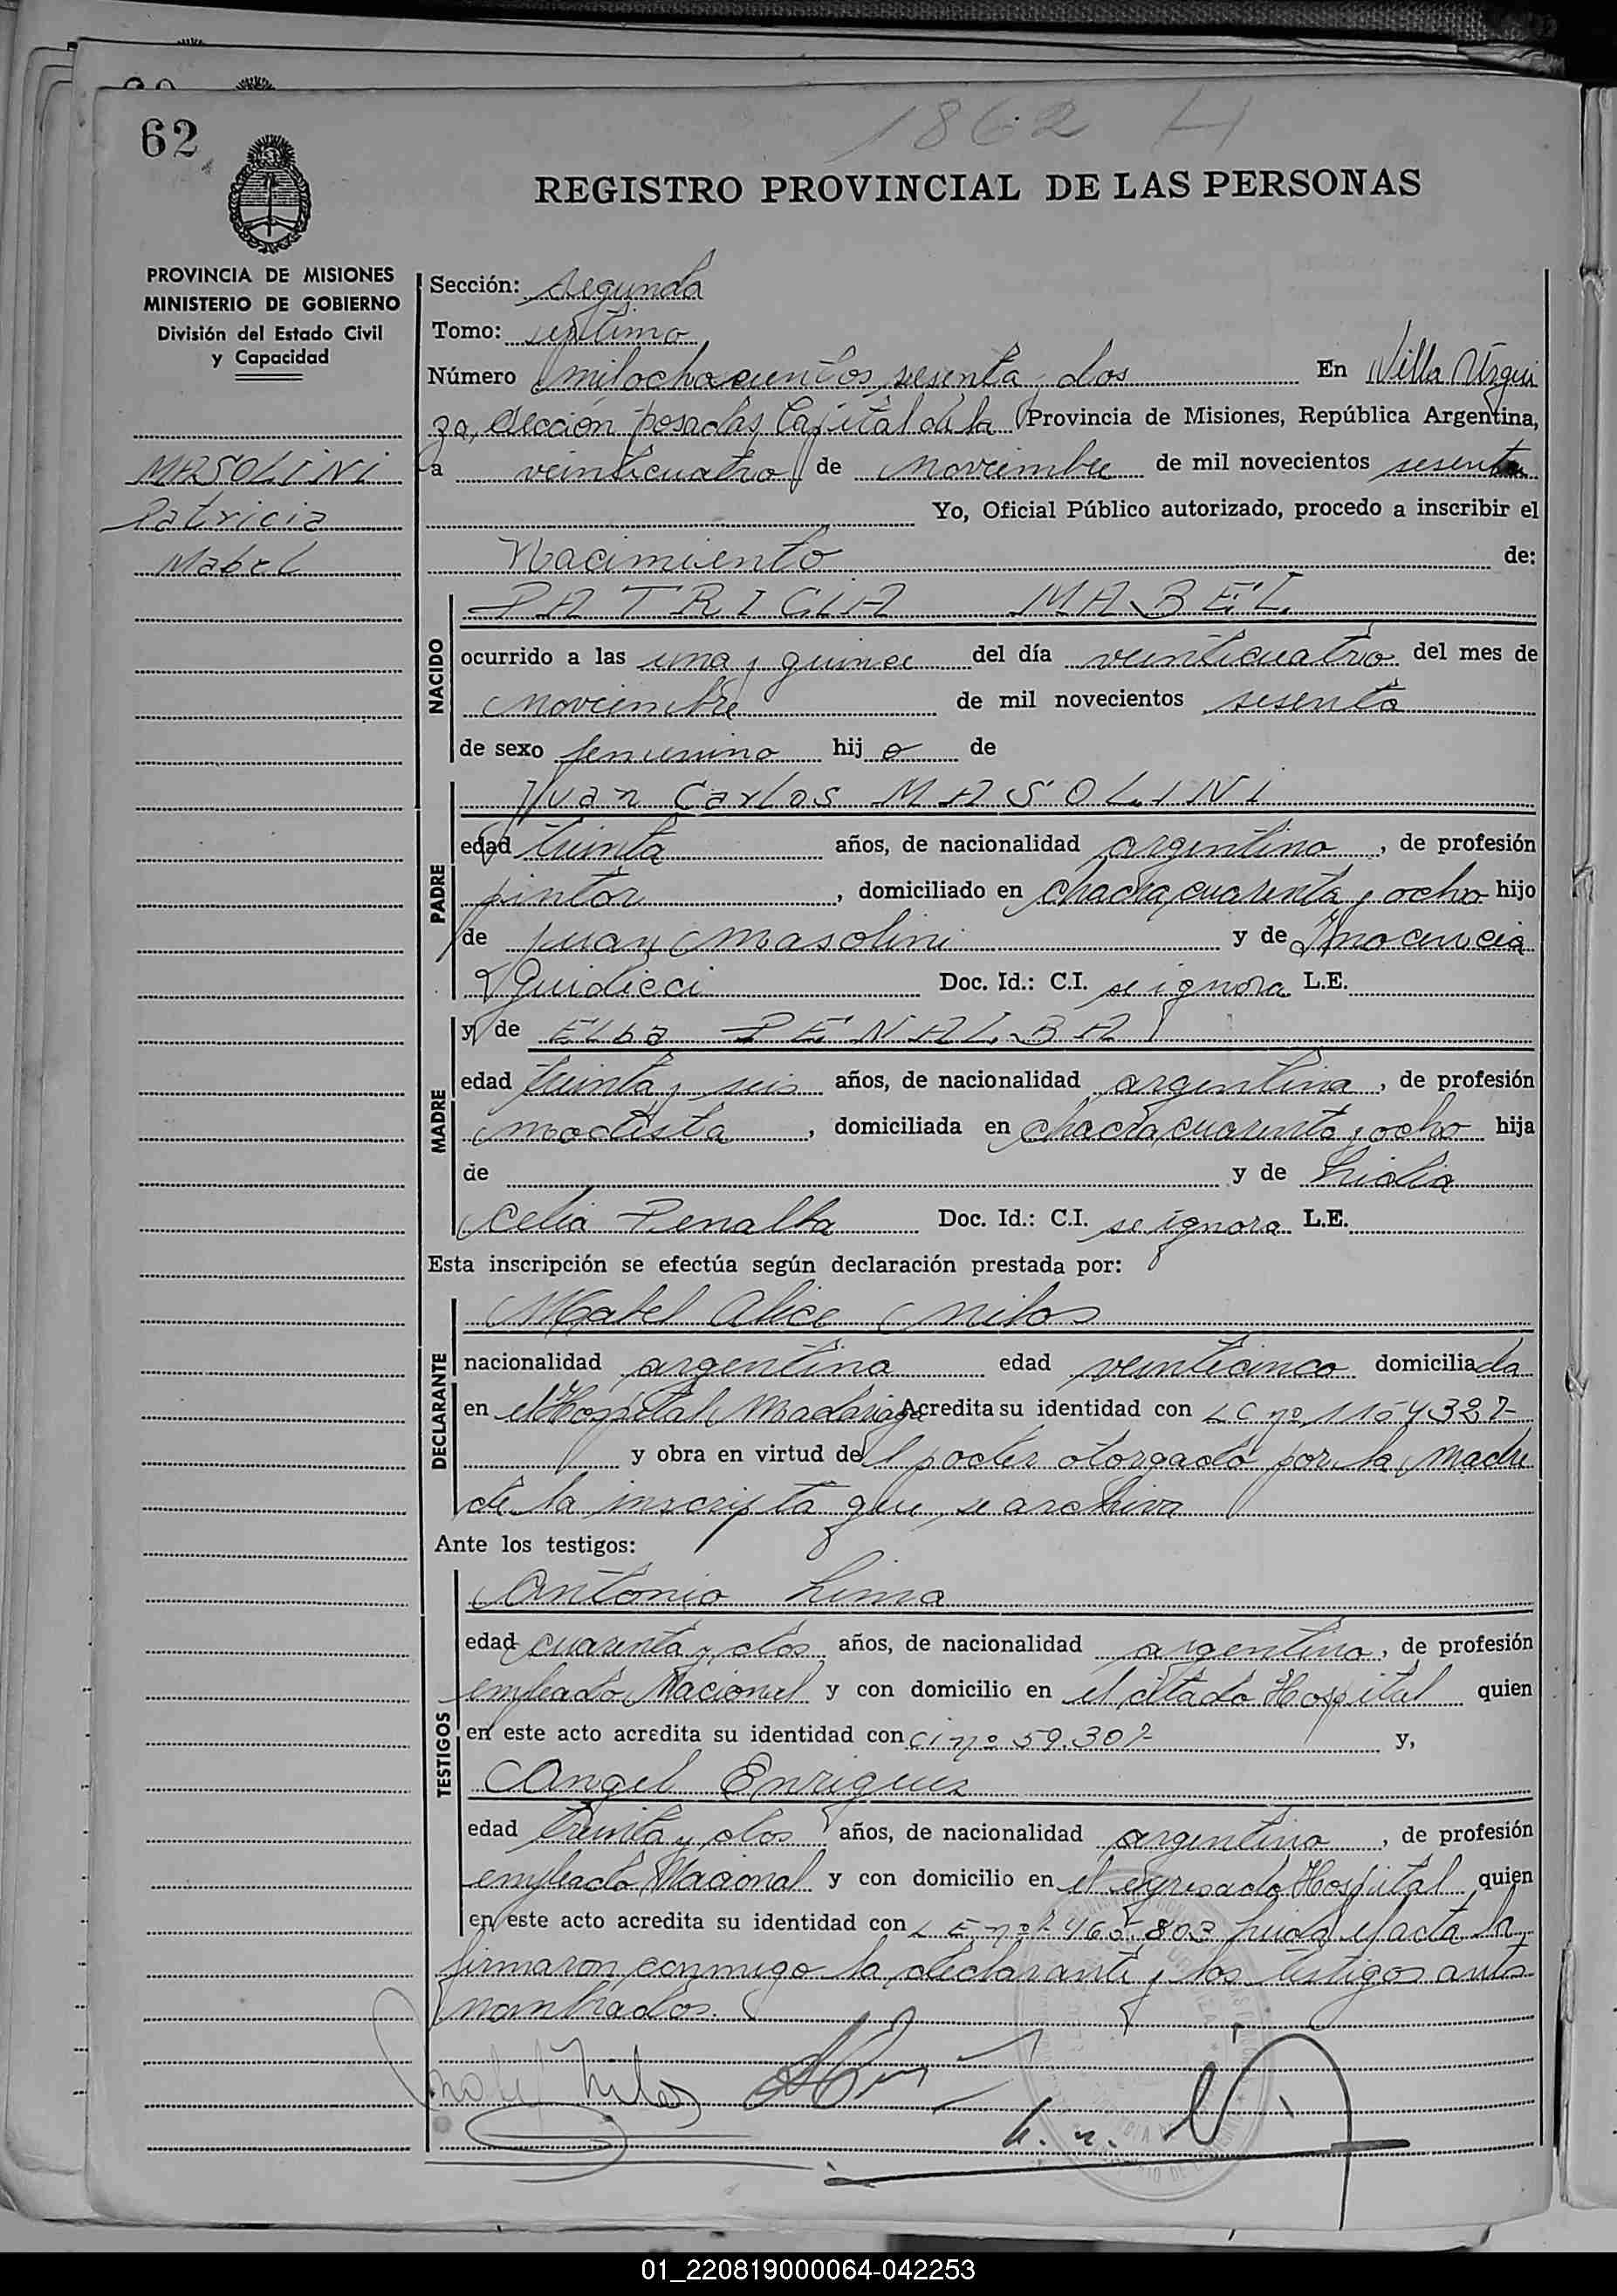 1862 H
62
REGISTRO PROVINCIAL DE LAS PERSONAS
PROVINCIA DE MISIONES
MINISTERIO DE GOBIERNO
División del Estado Civil
y Capacidad
MASOLINI
Patricia
Mabel
Sección: segunda
Tomo: septimo
Número milochocientos sesenta y dos En Villa Urqui
za, sección posadas Capital de la Provincia de Misiones, República Argentina,
a veinticuatro de noviembre de mil novecientos sesenta
Yo, Oficial Público autorizado, procedo a inscribir el
Nacimiento de:
NACIDO
PATRICIA MABEL
ocurrido a las una y quince del día veinticuatro del mes de
noviembre de mil novecientos sesenta
de sexo femenino hij a de
PADRE
Juan Carlos MASOLINI
edad treinta años, de nacionalidad argentino, de profesión
pintor, domiciliado en chacra cuarenta y ocho hijo
de Juan Masolini y de Inocencia
Guidicci Doc. Id.: C.I. se ignora L.E.
MADRE
y de Elba PENALBA
edad treinta y seis años, de nacionalidad argentina, de profesión
modista, domiciliada en chacra cuarenta y ocho hija
de y de Lidia
Celia Penalba Doc. Id.: C.I. se ignora L.E.
Esta inscripción se efectúa según declaración prestada por:
DECLARANTE
Mabel Alice Milos
nacionalidad argentina edad veinticinco domiciliada
en el Hospital Madariaga Acredita su identidad con LC nº 1154327-
y obra en virtud del poder otorgado por la madre
de la inscripta que se archiva
Ante los testigos:
TESTIGOS
Antonio Lima
edad cuarenta y dos años, de nacionalidad argentino, de profesión
empleado Nacional y con domicilio en el citado Hospital quien
en este acto acredita su identidad con ci nº 59.307- y,
Angel Enriquez
edad treinta y dos años, de nacionalidad argentino, de profesión
empleado Nacional y con domicilio en el Hospital quien
en este acto acredita su identidad con LE nº 465.803 leida el acta la
firmaron conmigo la declarante y los testigos ants
nombrados.
01_220819000064-042253